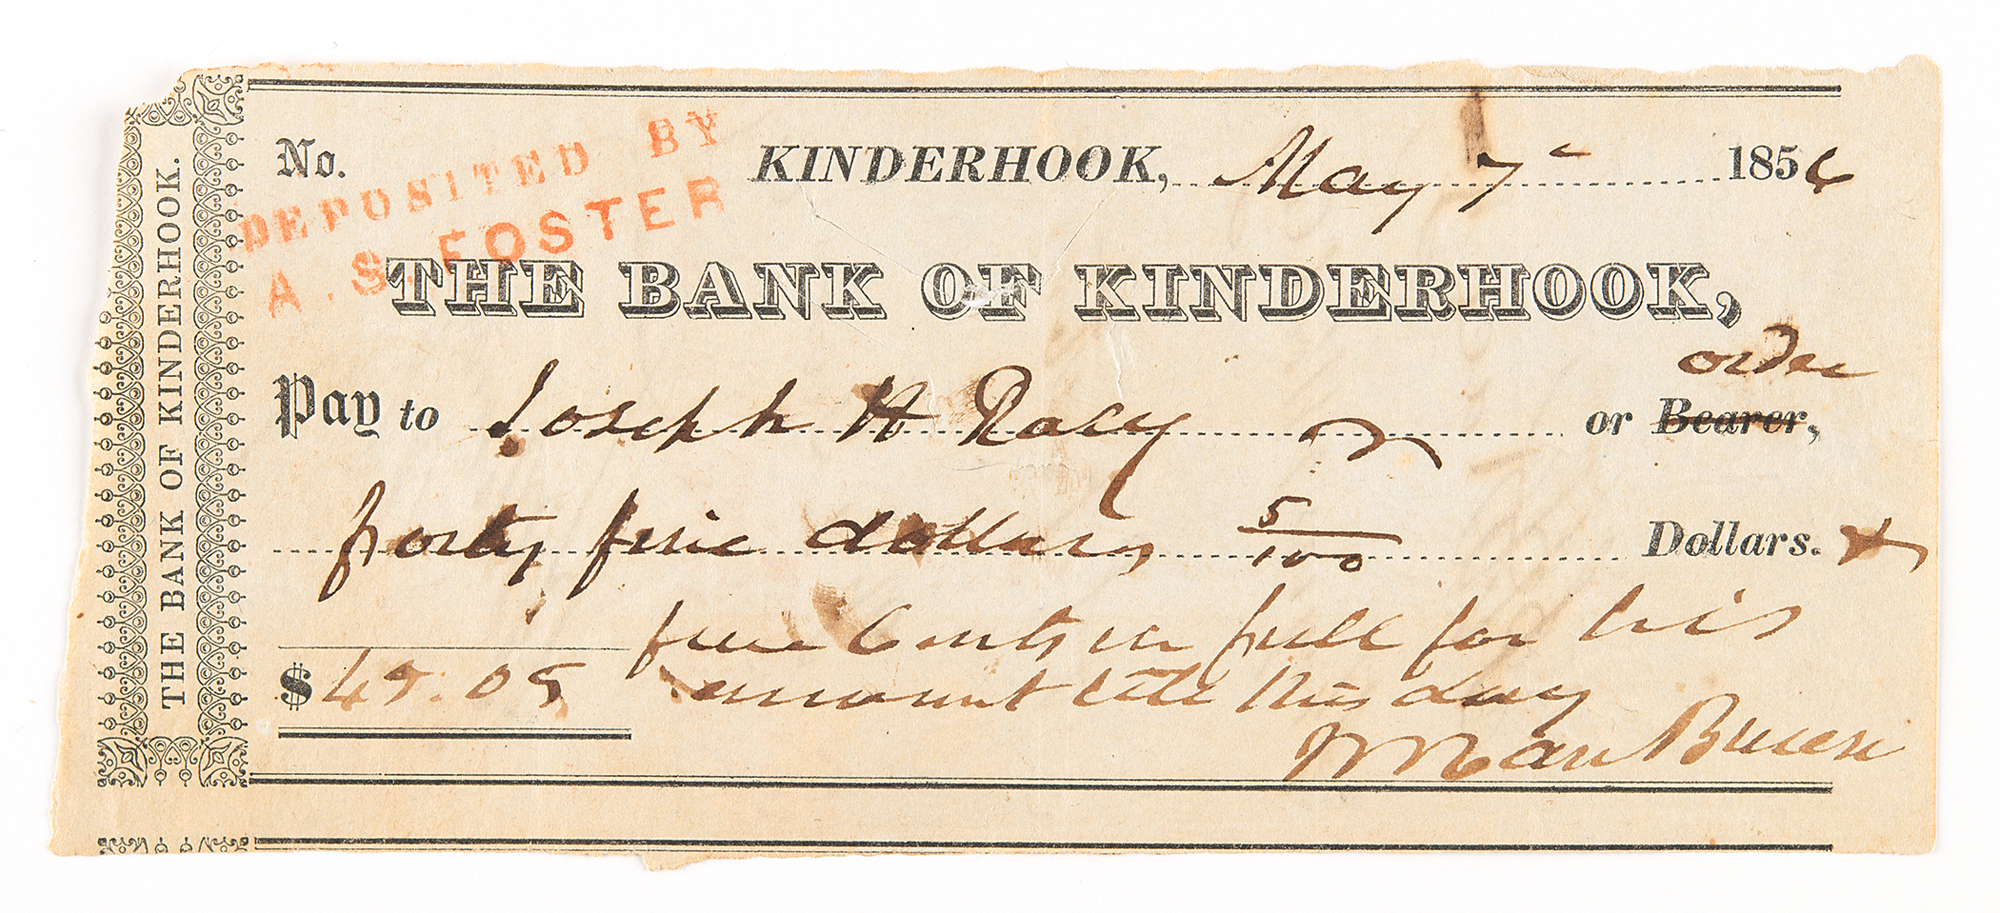 THE BANK OF KINDERHOOK.
DEPOSITED BY
A. S. FOSTER
No. KINDERHOOK, May 7 1856
THE BANK OF KINDERHOOK,
order
Pay to Joseph H Racy or Bearer,
forty five dollars 5/100 Dollars. &
five Cents in full for his
$45.05 amount till this day
M Van Buren